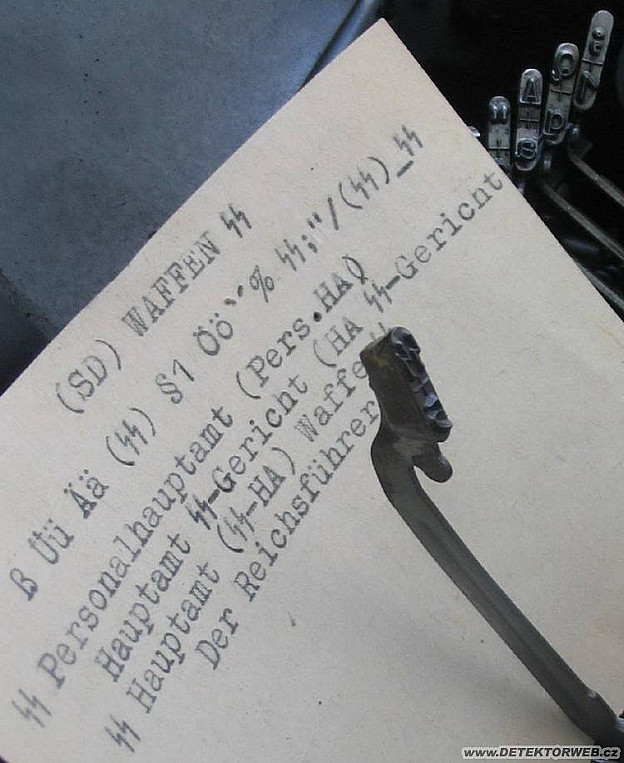 (SD) WAFFEN ᛋᛋ
ß Üü Ää (ᛋᛋ) §1 Öö % ᛋᛋ;"/(ᛋᛋ)_ᛋᛋ
ᛋᛋ Personalhauptamt (Pers.HA)
Hauptamt ᛋᛋ-Gericht (HA ᛋᛋ-Gericht
ᛋᛋ Hauptamt (ᛋᛋ-HA) Waffe
Der Reichsführer
www.DETEKTORWEB.cz